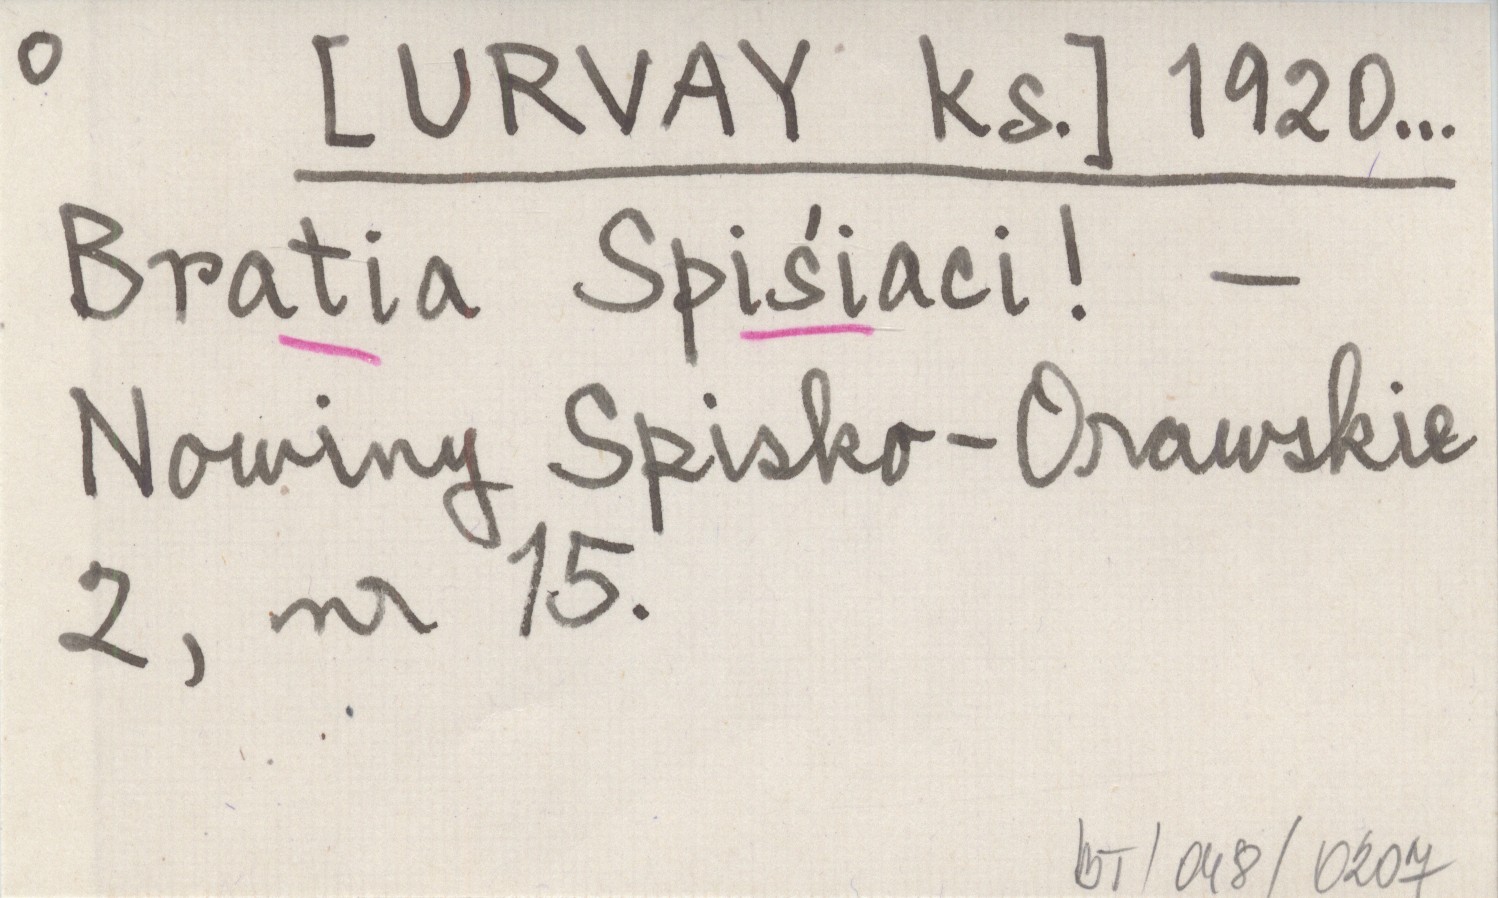 o [URVAY ks.] 1920...
Bratia Spiśiaci! –
Nowiny Spisko-Orawskie
2, nr 15.
BT/048/0207